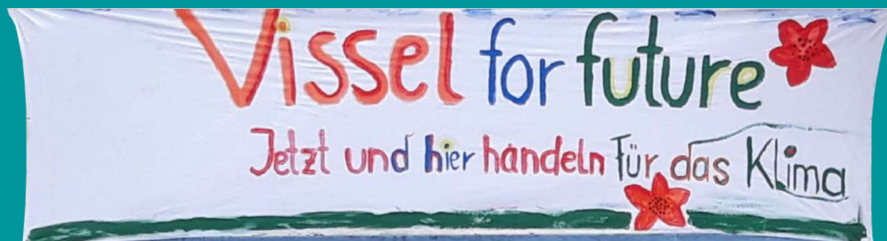 Vissel for future
Jetzt und hier handeln für das Klima